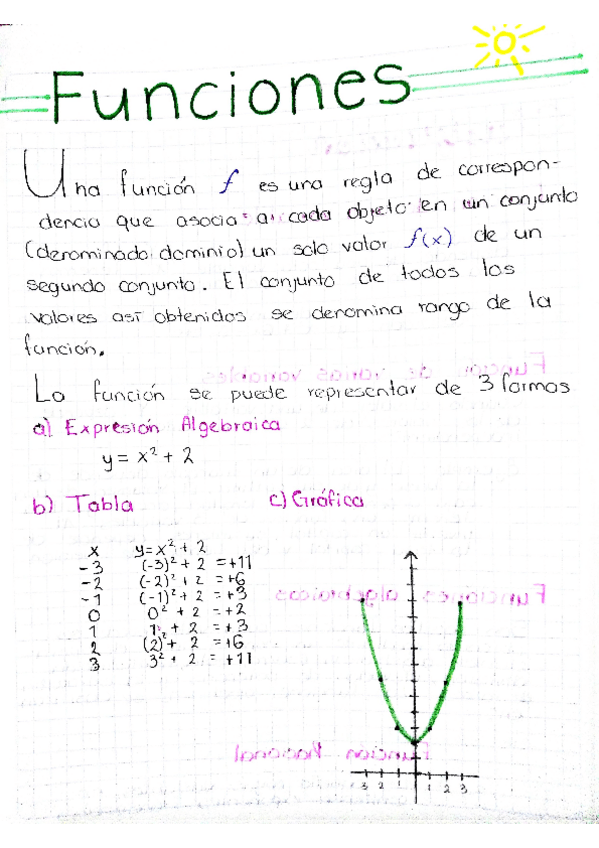 Funciones
Una función f es una regla de correspon-
dencia que asocia a cada objeto en un conjunto
(denominado dominio) un solo valor f(x) de un
segundo conjunto. El conjunto de todos los
valores así obtenidos se denomina rango de la
función.
La función se puede representar de 3 formas
a) Expresión Algebraica
y = x² + 2
b) Tabla
c) Gráfica
x y = x² + 2
-3 (-3)² + 2 = +11
-2 (-2)² + 2 = +6
-1 (-1)² + 2 = +3
0 0² + 2 = +2
1 1² + 2 = +3
2 (2)² + 2 = +6
3 3² + 2 = +11
3 2 1 1 2 3